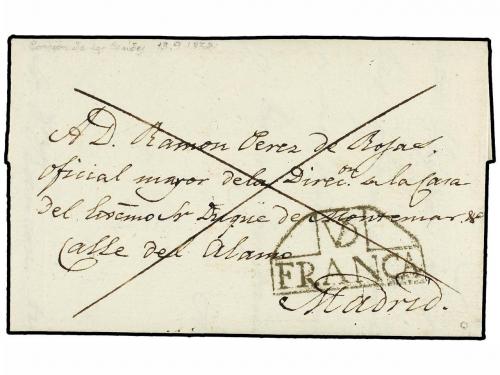 Carrión de los Condes 19.9.1829
A D. Ramon Perez de Rojas.
oficial mayor de la Direc.on de la Casa
del Excmo Sr Duque de Montemar &
Calle del Alamo
VD
FRANCA
Madrid.